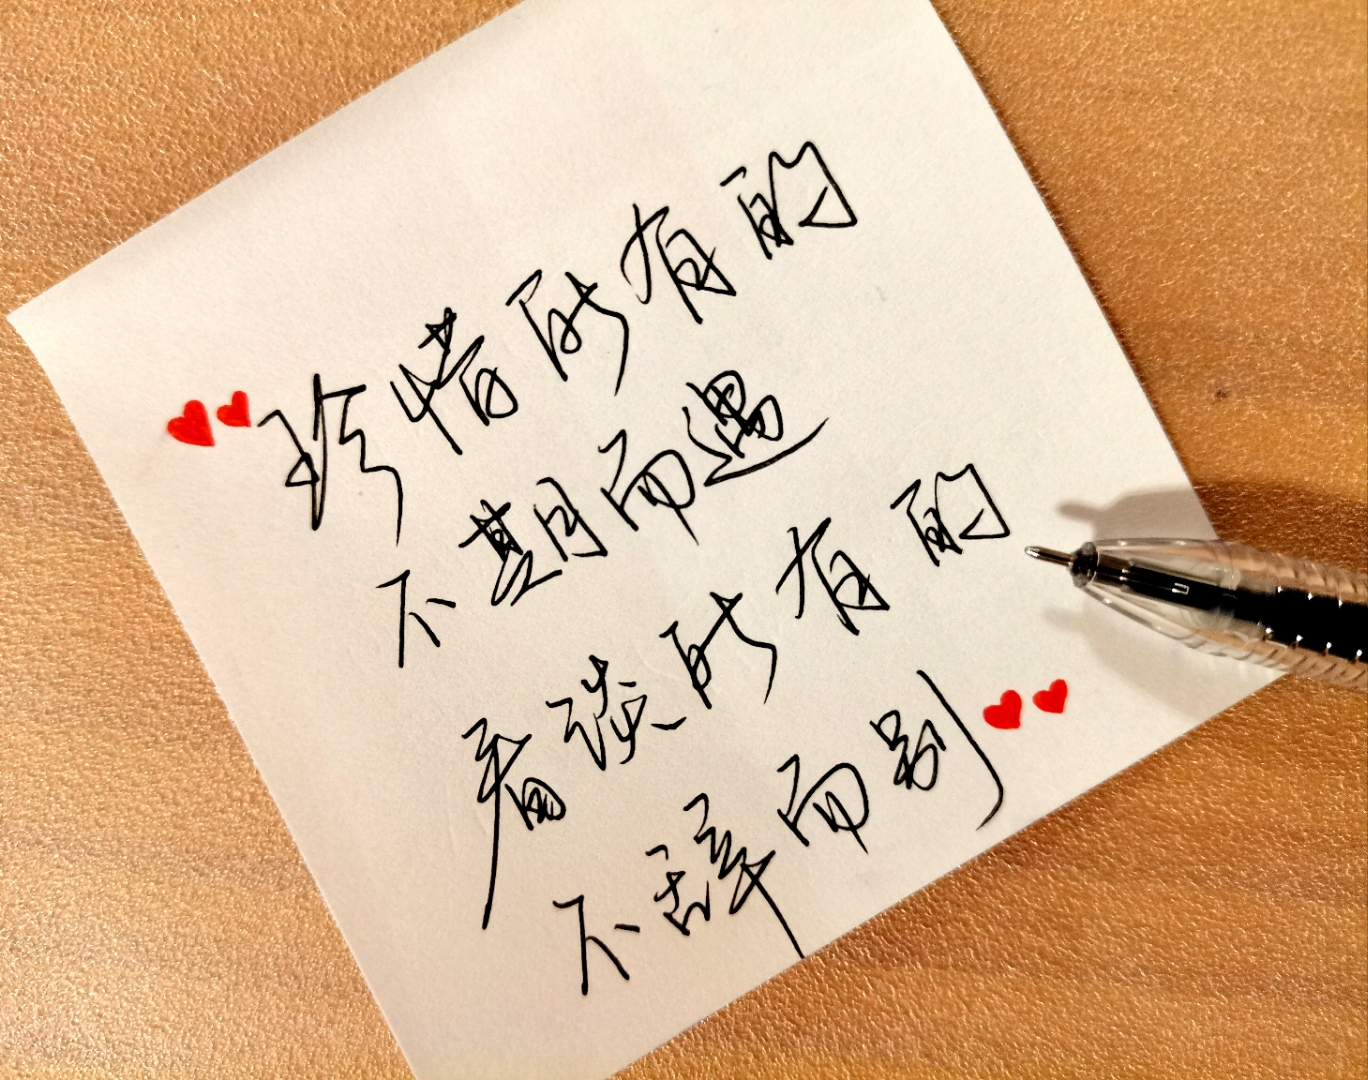 珍惜所有的
不期而遇
看谈所有的
不辞而别